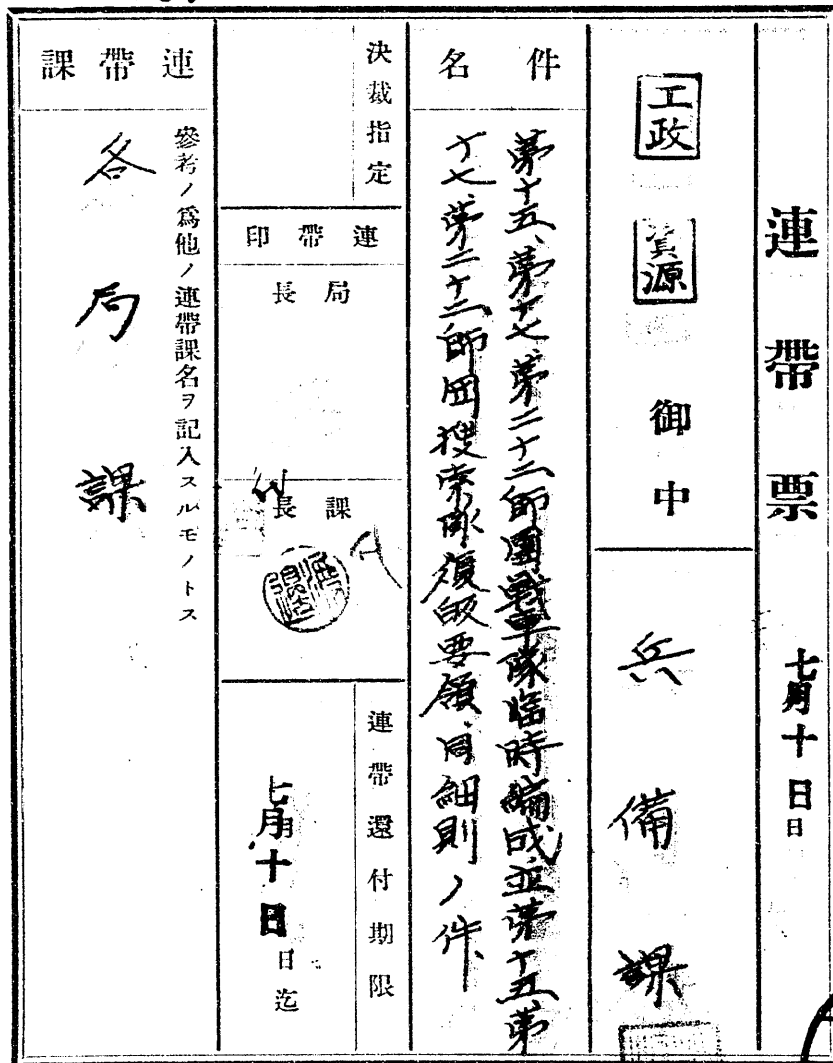 連帶票
七月十日日
工政
資源
御中
兵備課
件名
第十五、第十七、第二十二師團戰車隊臨時編成竝第十五第
十七、第二十二師団搜索隊復帰要領同細則ノ件
決裁指定
連帶印
局長
課長
連帶還付期限
七月月十日日迄
連帶課
參考ノ爲他ノ連帶課名ヲ記入スルモノトス
各局課